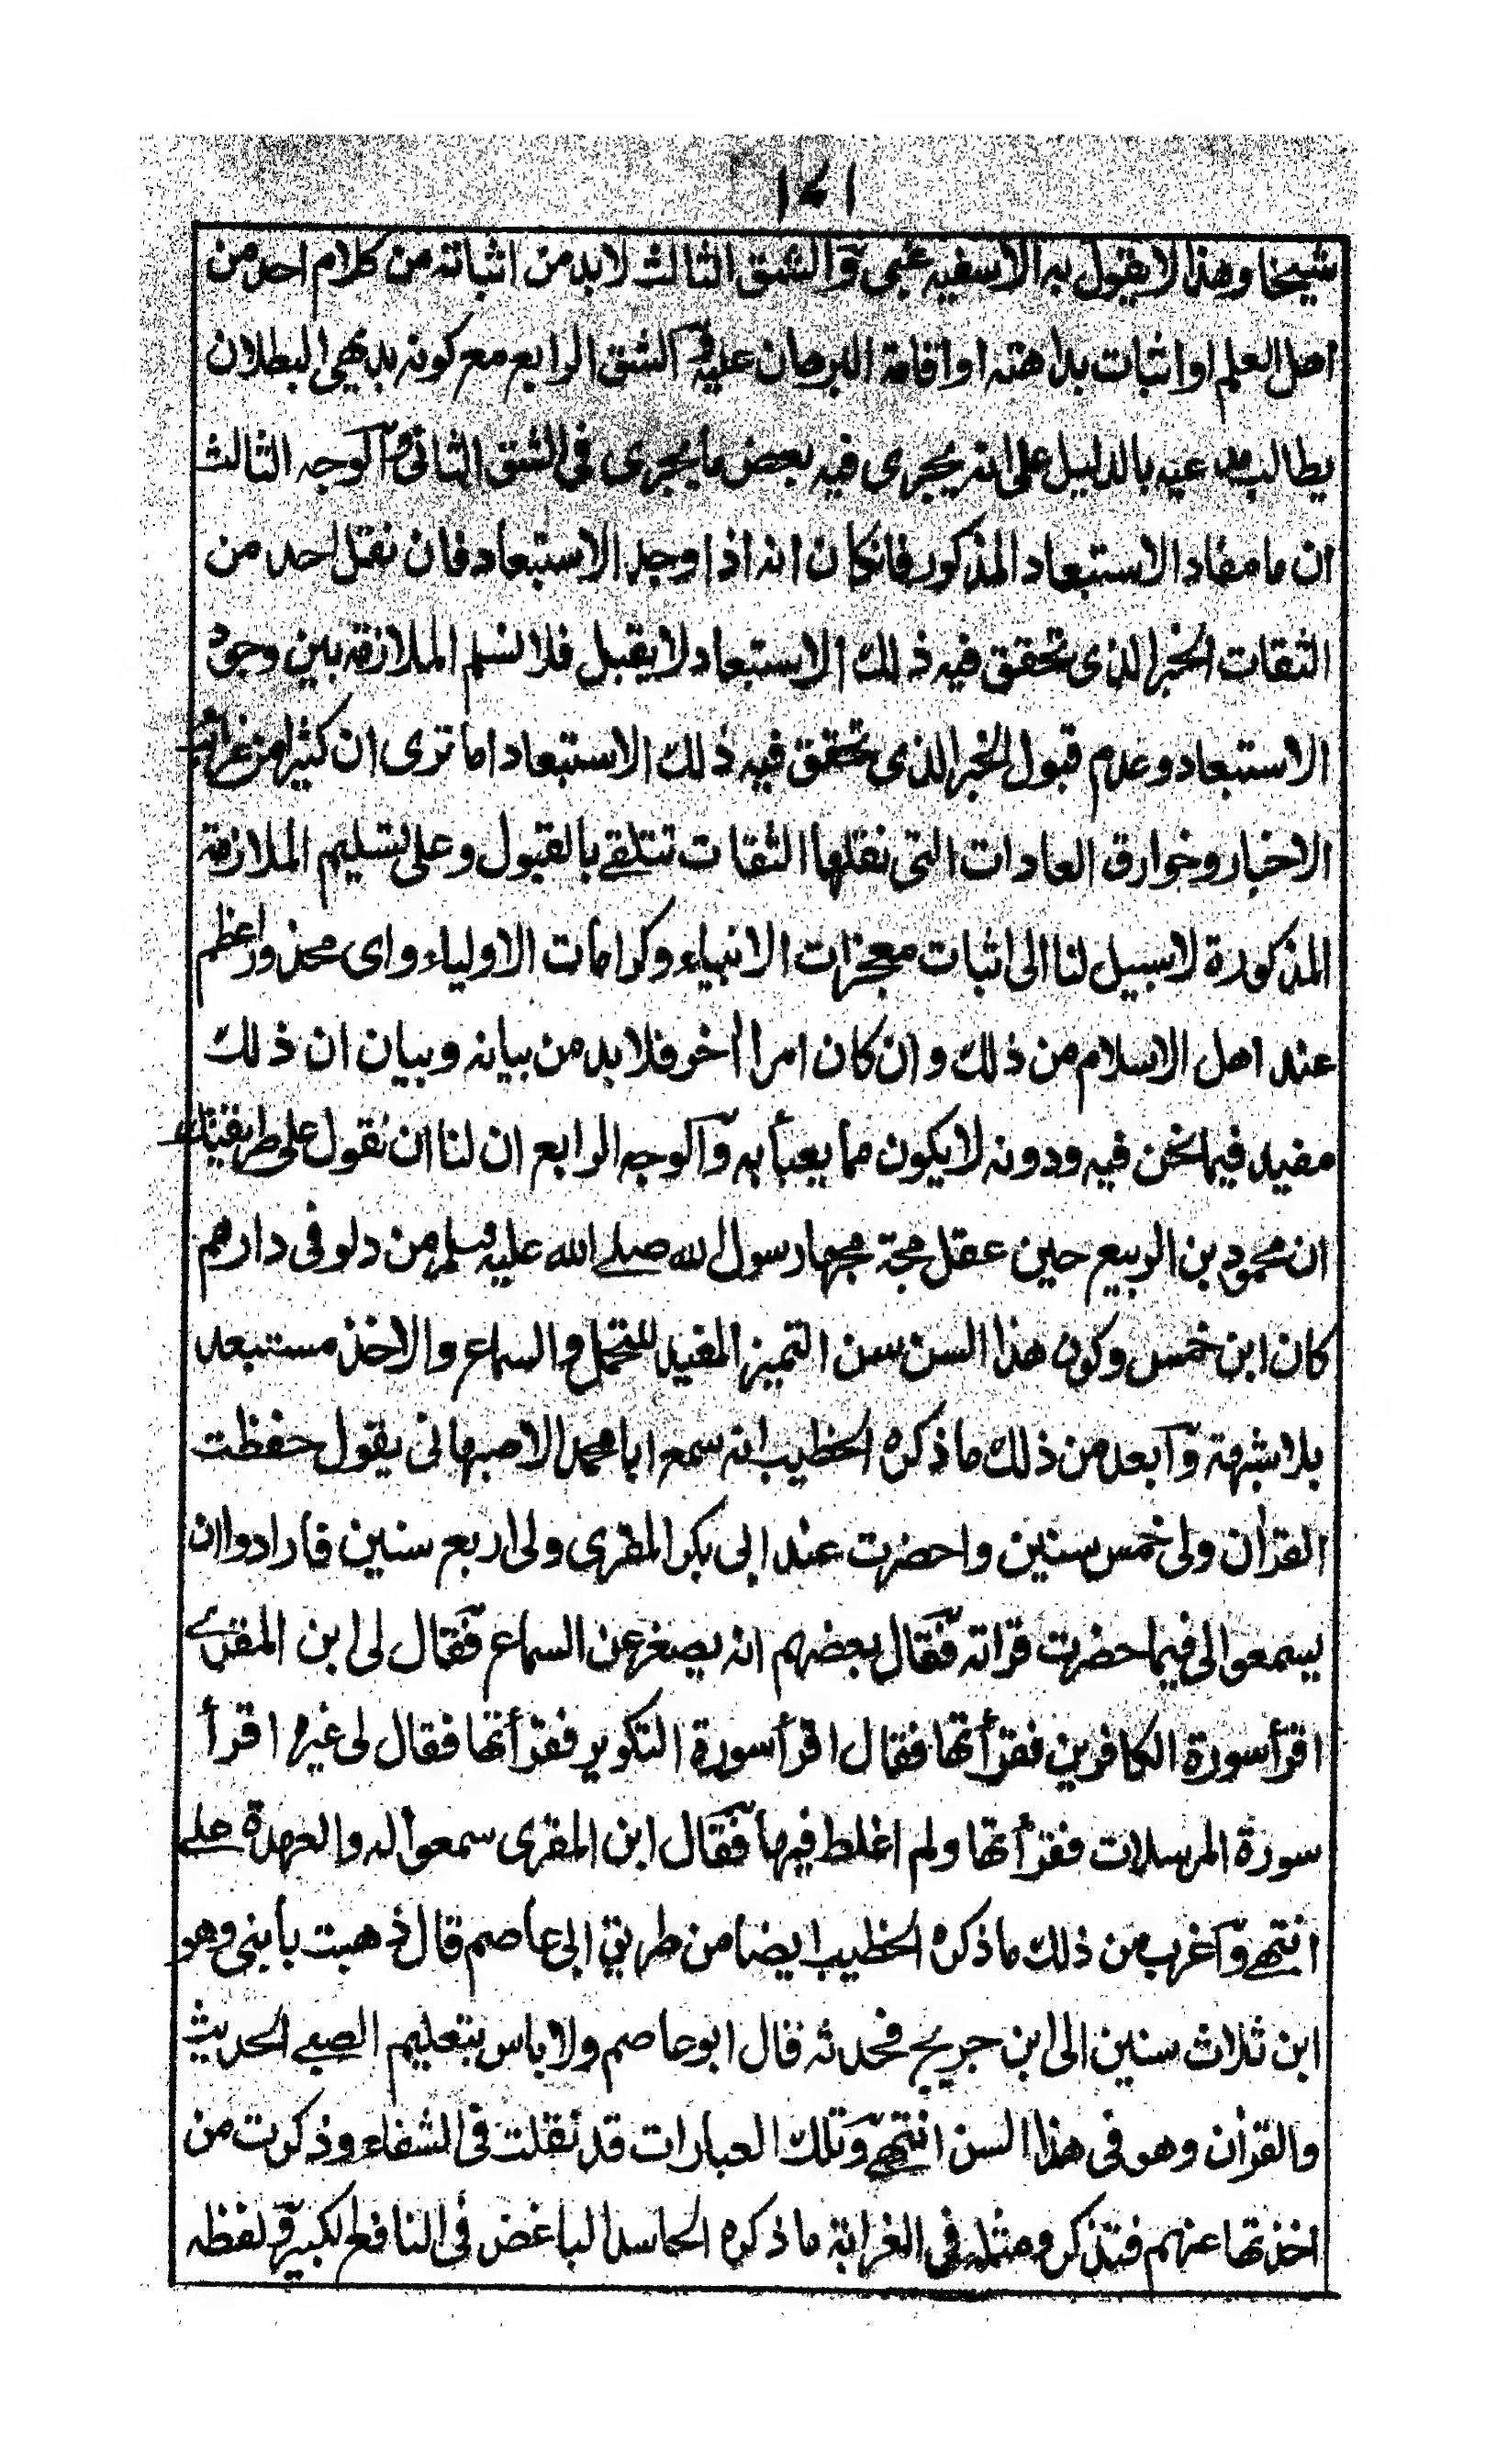 ۱۷۱
شيخا وهذا لا يقول به الا سفيه غبى والشق الثالث لا بد من اثباته من كلام احد من
اهل العلم او اثبات بداهته او اقامة البرهان عليه والشق الرابع مع كونه بديهى البطلان
يطالب مدعيه بالدليل على انه يجرى فيه بعض ما يجرى فى الشق الثانى والوجه الثالث
ان ما مفاد الاستبعاد المذكور فان كان انه اذا وجد الاستبعاد فان نقل احد من
الثقات الخبر الذى تحقق فيه ذلك الاستبعاد لا يقبل فلا نسلم الملازمة بين وجود
الاستبعاد وعدم قبول الخبر الذى تحقق فيه ذلك الاستبعاد اما ترى ان كثيرا من غرائب
الاخبار وخوارق العادات التى نقلها الثقات تتلقے بالقبول وعلى تسليم الملازمة
المذكورة لا سبيل لنا الى اثبات معجزات الانبياء وكرامات الاولياء واى محذور اعظم
عند اهل الاسلام من ذلك وان كان امرا أخر فلا بد من بيانه وبيان ان ذلك
مفيد فيما نحن فيه ودونه لا يكون مما يعبأ به والوجه الرابع ان لنا ان نقول على طريقتك
ان محمود بن الربيع حين عقل مجة مجها رسول الله صلے الله عليه وسلم من دلو فى دارهم
كان ابن خمس وكون هذا السن سن التميز المفيد للتحمل والسماع والاخذ مستبعد
بلا شبهة وابعد من ذلك ما ذكره الخطيب انه سمع ابا محمد الاصبهانى يقول حفظت
القرأن ولى خمس سنين واحضرت عند ابى بكر المقرى ولى اربع سنين فارادوا ان
يسمعوا لى فيما حضرت قراته فقال بعضهم انه يصغر عن السماع فقال لى ابن المقرے
اقرأ سورة الكافرين فقرأتها فقال اقرأ سورة التكوير فقرأتها فقال لى غيره اقرأ
سورة المرسلات فقرأتها ولم اغلط فيها فقال ابن المقرى سمعوا له والعهدة علے
انتهے واغرب من ذلك ما ذكره الخطيب ايضا من طريق ابى عاصم قال ذهبت بأبنى وهو
ابن ثلاث سنين الى ابن جريج فحدثه قال ابو عاصم ولا باس بتعليم الصبے الحديث
والقرأن وهو فى هذا السن انتهے وتلك العبارات قد نقلت فى الشفاء وذكرت من
اخذتها عنهم فتذكر ومثله فى الغرابة ما ذكره الحاسد الباغض فى النافع الكبير ولفظه